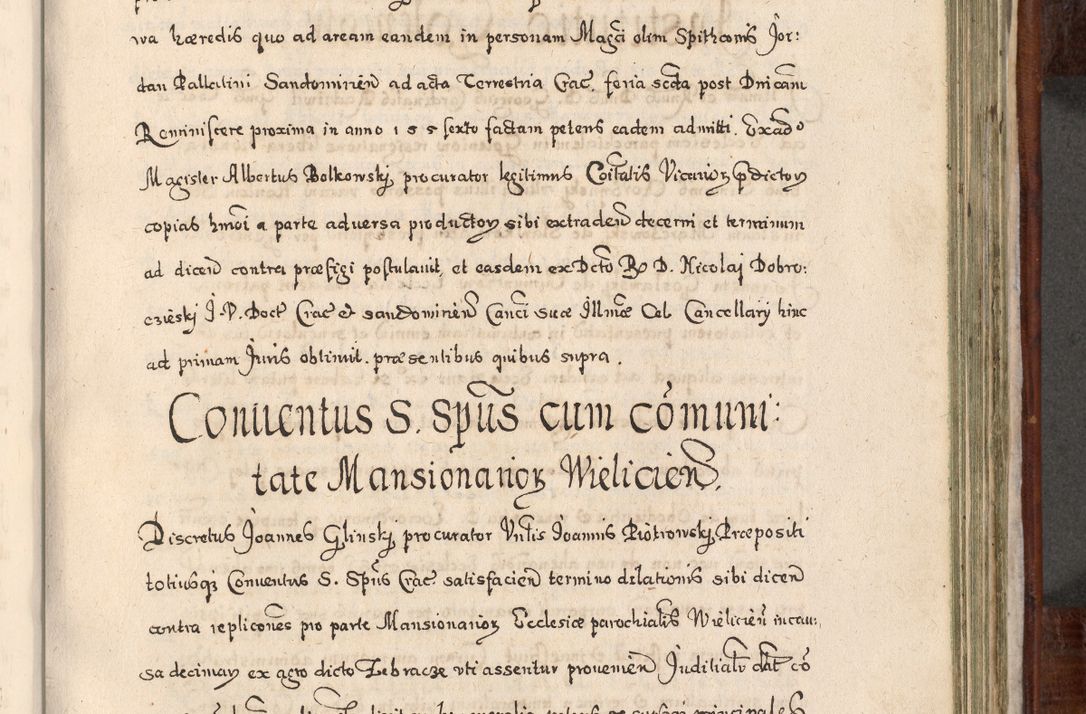 wa hæredis quo ad aream eandem in personam Magci olim Spithconis Jor:
dan Pallatini Sandomirien ad acta Terrestria Crac. feria scda post Dnicam
Reminiscere proxima in anno 155 sexto factam petens eadem admitti. Exado
Magister Albertus Bolkowskj procurator legitimus Coitatis Vicarioꝝ pdictoꝝ
copias hmoi a parte adversa productoꝝ sibi extraden decerni et terminum
ad dicen contra præfigi postulavit, et easdem ex Dcto R D. Nicolaj Dobro:
czieskj J. V. Doct Crac et sandomirien Canci suæ Illmæ Cel Cancellarij hinc
ad primam Juris obtinuit. præsentibus quibus supra.
Conuentus S. Spũs cum cõmuni:
tate Mansionarioꝝ Wielicień.
Discretus Joannes Glinskj procurator Vnlis Joannis Piotrowskj Præpositi
totiusqꝫ Conuentus S. Spũs Crac satisfacien termino dilationis sibi dicen
contra replicones pro parte Mansionarioꝝ Ecclesiæ parochialis Wielicien in cau:
sa decimaꝝ ex agro dicto Zebracze vti assentur provenien Juditialr dat cõ